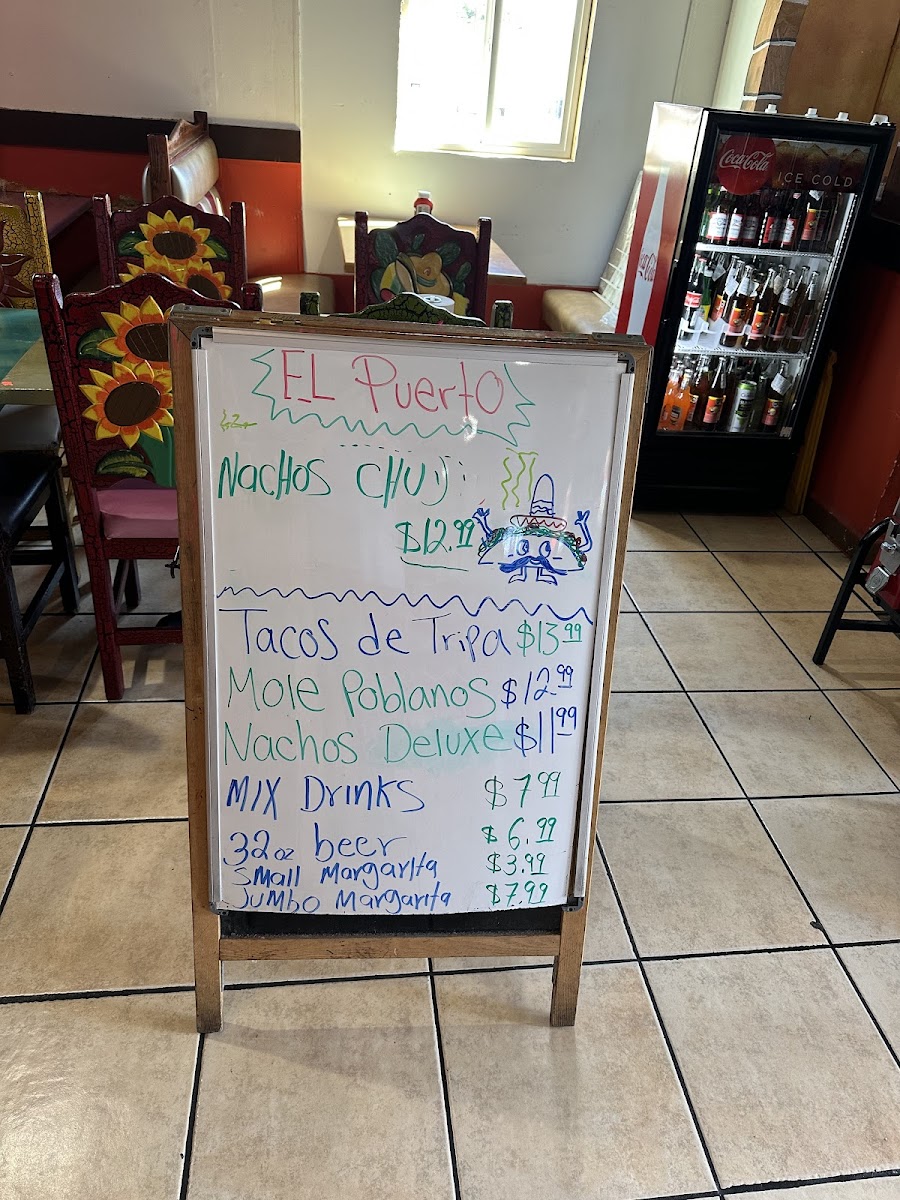 EL PuertO
NACHOS CHUY
$12.99
Tacos de Tripa $13.99
Mole Poblanos $12.99
Nachos Deluxe $11.99
MIX DrinKs $7.99
32oz beer $6.99
Small Margarita $3.99
Jumbo Margarita $7.99
Coca-Cola
ICE COLD
Coca-Cola